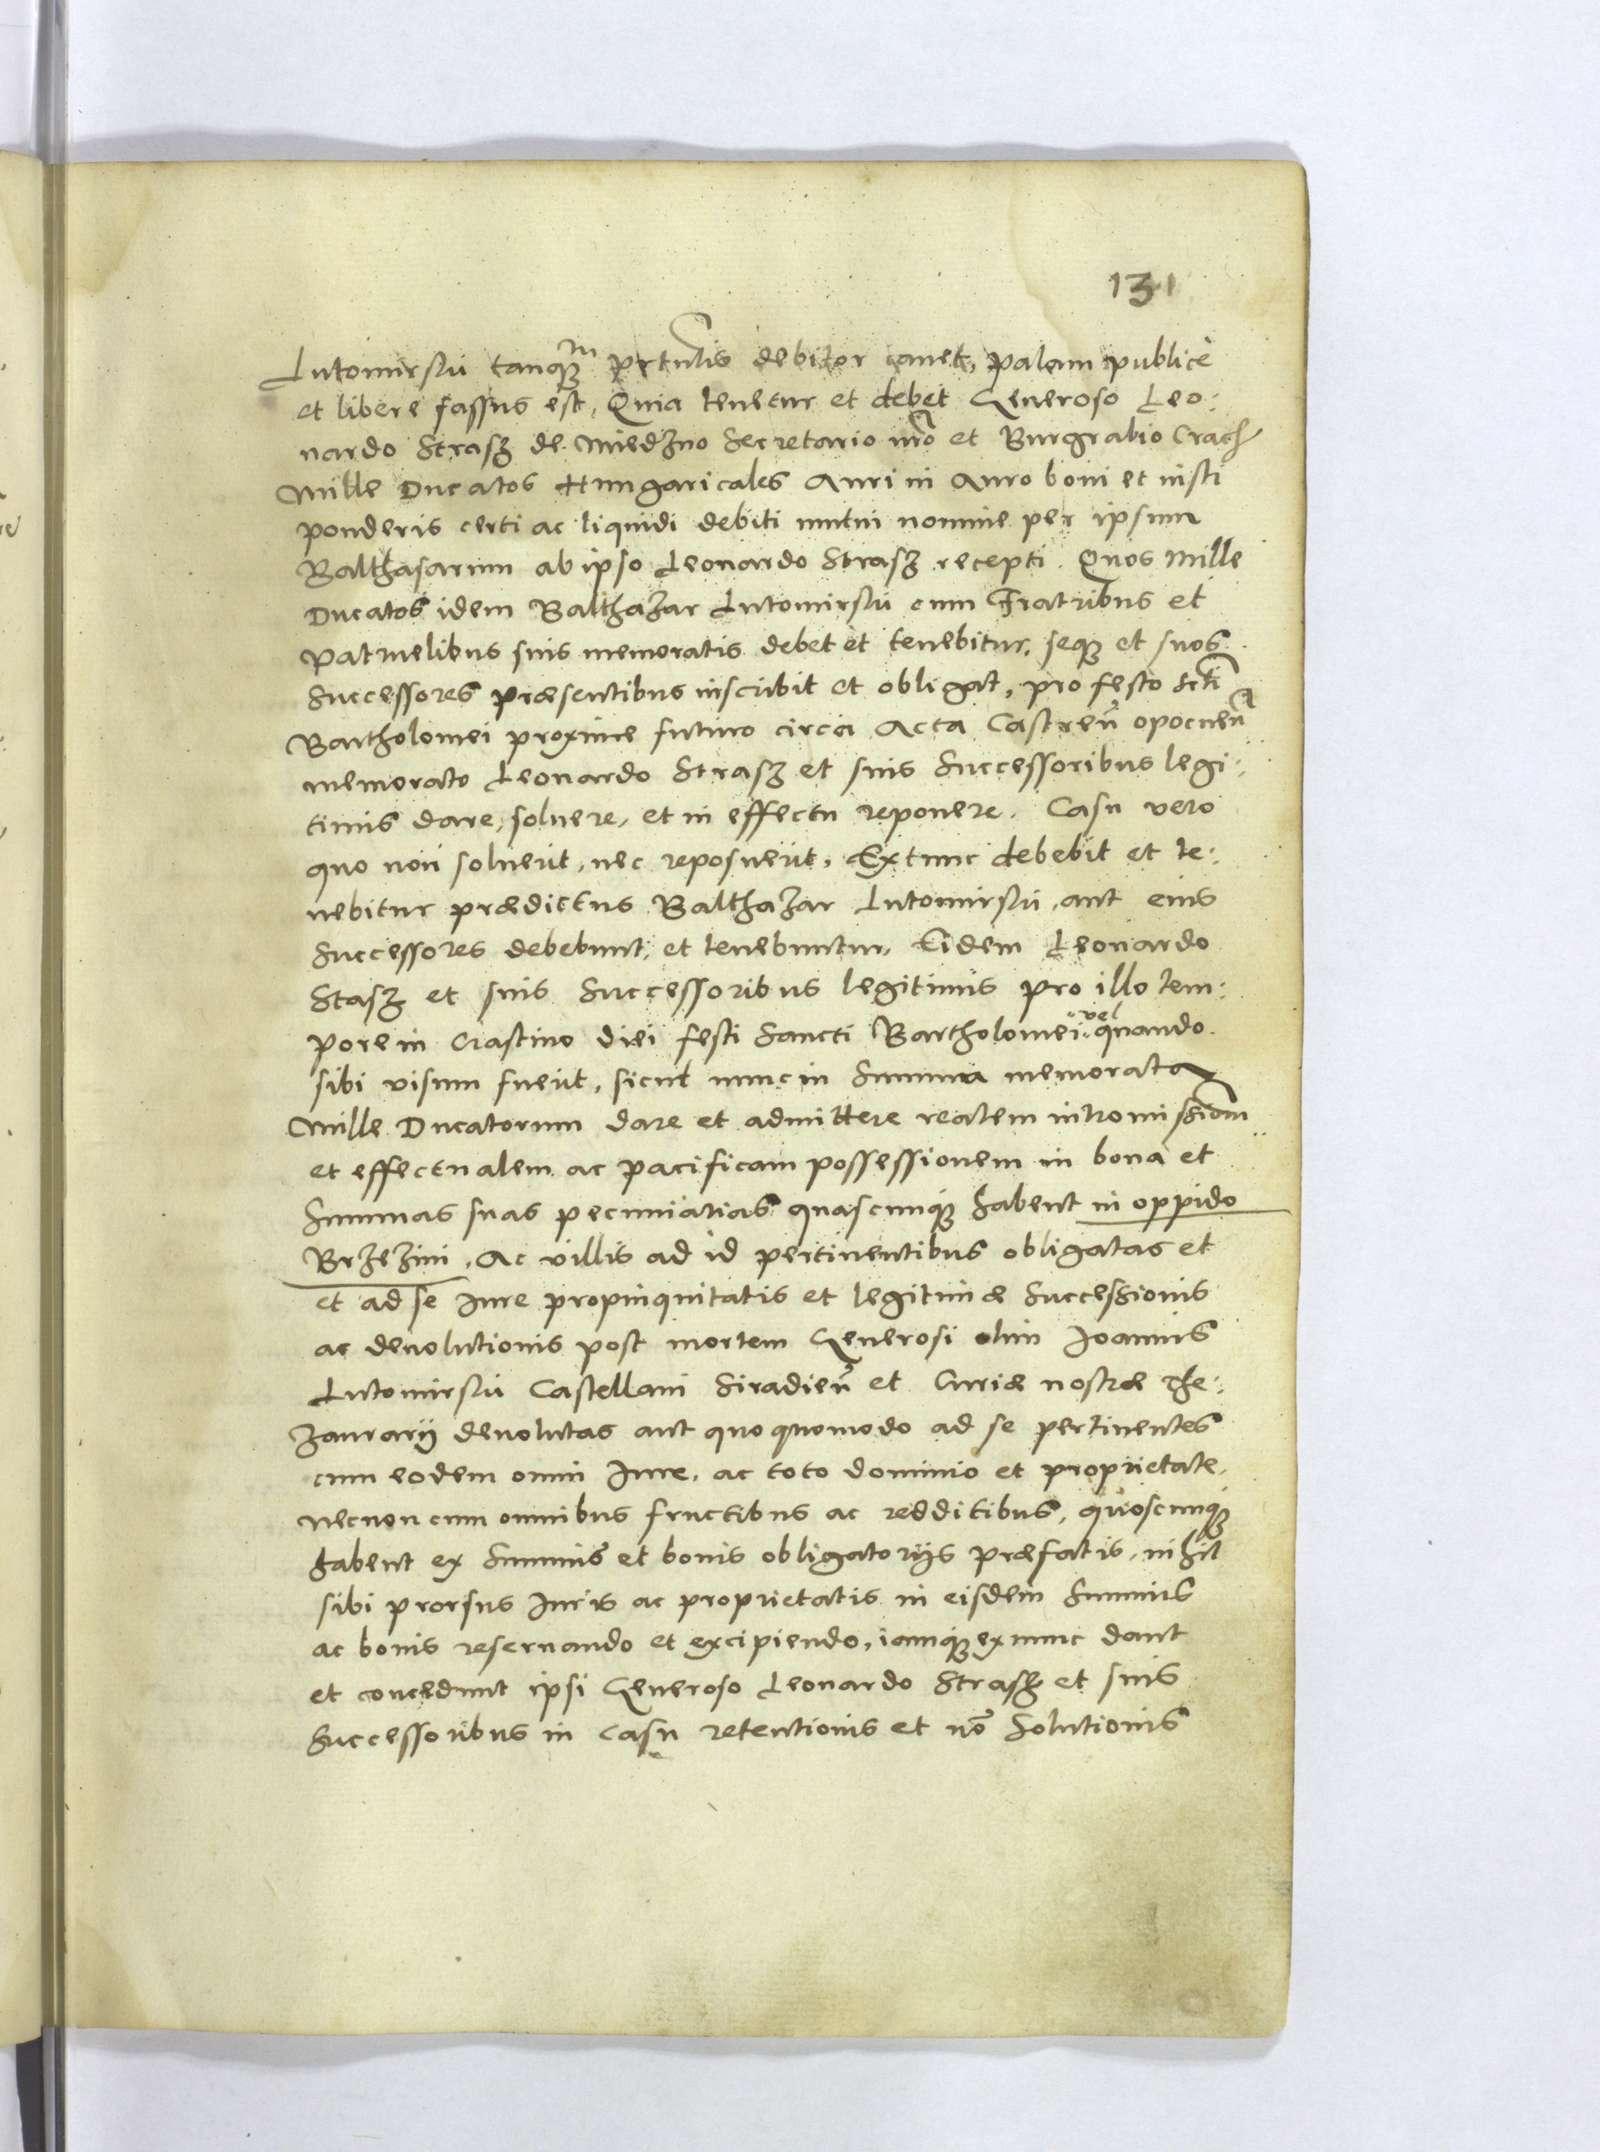 131
Lutomirski tanq3 in debitor cavet, palam publice
et libere fassus est, Quia tenetur et debet Generoso Leo:
nardo Strasz de Miedzno Secretario nro et Burgrabio Crach
Mille Ducatos Hungaricales Auri in Auro boni et iusti
ponderis certi ac liquidi debiti mutui nomine per ipsum
Balthasarum ab ipso Leonardo Strasz recepti. Quos Mille
Ducatos idem Balthazar Lutomirski cum Fratribus et
patruelibus suis memoratis debet et tenebitur, seq3 et suos
Successores præsentibus inscribit et obligat, pro festo Scti
Bartholomei proxime futuro circa Acta Castren opocnen
memorato Leonardo Strasz et suis Successoribus legi:
timis dare, solvere, et in effectu reponere. Casu vero
quo non solverit, nec reposuerit, Extunc debebit et te:
nebitur prædictus Balthazar Lutomirski, aut eius
Successores debebunt, et tenebuntur, Eidem Leonardo
Stasz et suis Successoribus legitimis pro illo tem:
pore in Crastino diei festi Sancti Bartholomei vel quando
sibi visum fuerit, sicut nunc in Summa memorata
Mille Ducatorum dare et admittere realem intromissiom
et effectualem ac pacificam possessionem in bona et
Summas suas pecuniarias quascunq3 habent in oppido
Brzezini, Ac villis ad id pertinentibus obligatas et
et ad se Iure propinquitatis et legitimæ Successionis
ac devolutionis post mortem Generosi olim Joannis
Lutomirski Castellani Siradien et Curiæ nostræ The:
zaurarij devolutas aut quoquomodo ad se pertinentes
cum eodem omni Iure, ac toto dominio et proprietate,
necnon cum omnibus fructibus ac redditibus, quoscunq3
habent ex Summis et bonis obligatorijs præfatis, nihil
sibi prorsus Iuris ac proprietatis in eisdem Summis
ac bonis reservando et excipiendo, iamq3 ex nunc dant
et concedunt ipsi Generoso Leonardo Strasz et suis
Successoribus in Casu retentionis et no Solutionis